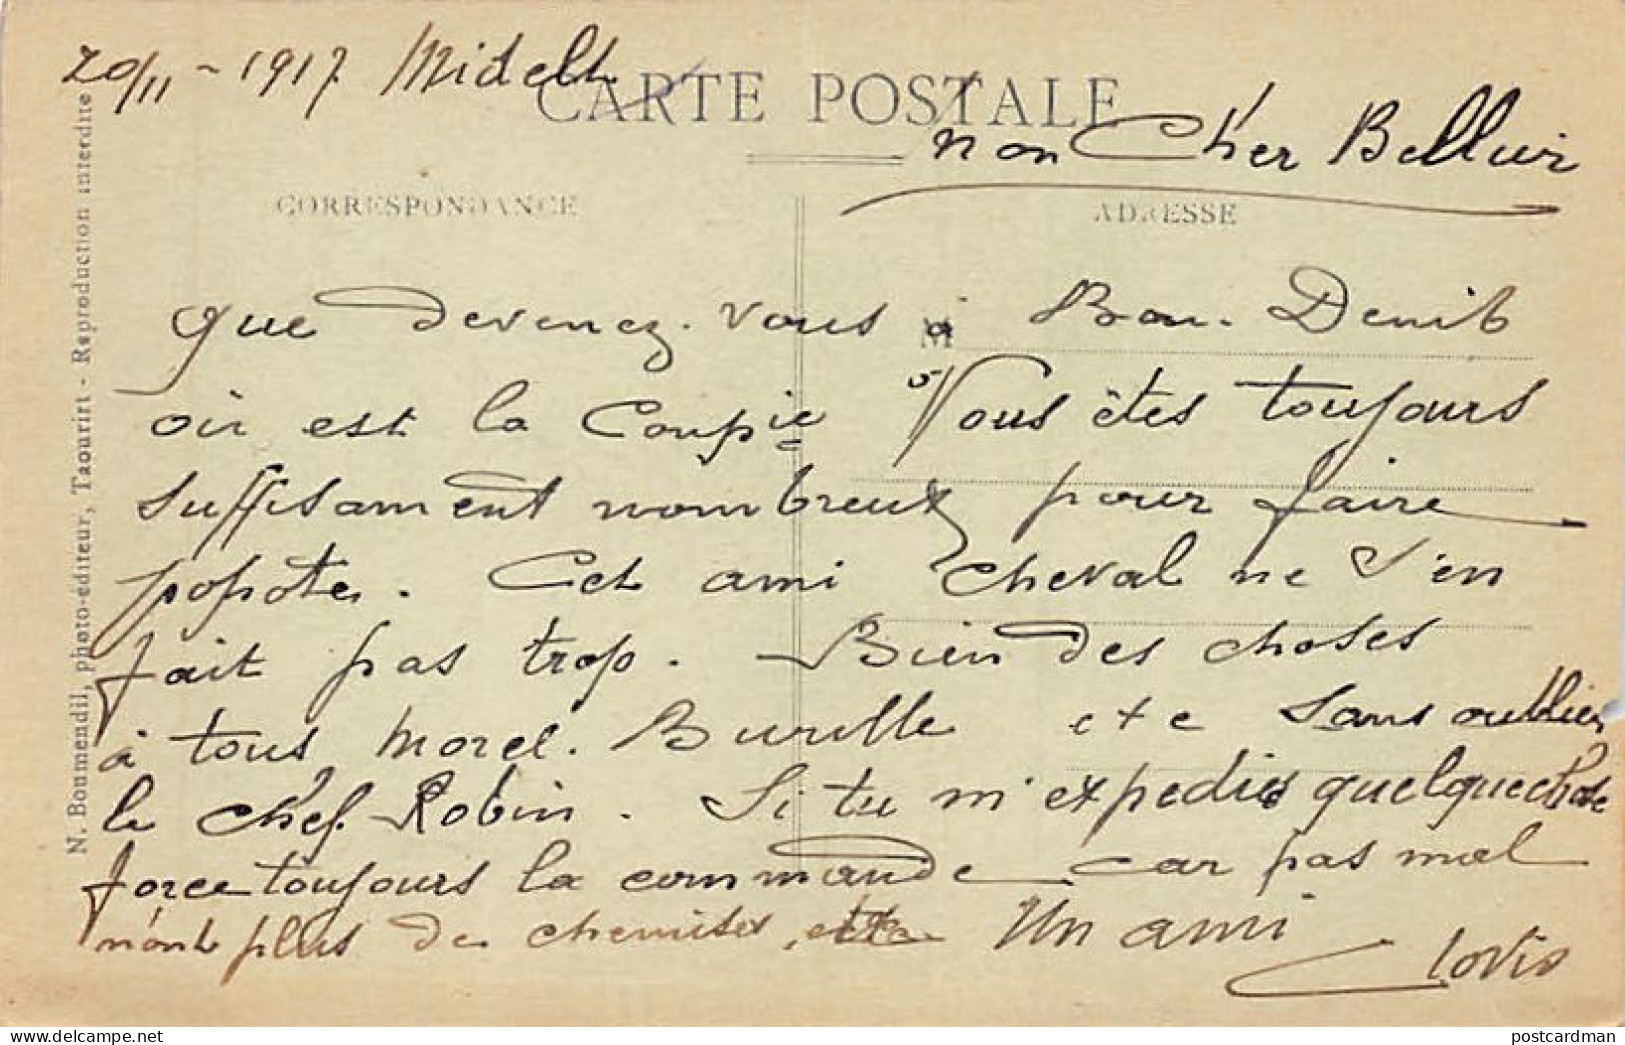 20/11 - 1917 Midelt
CARTE POSTALE
Mon Cher
CORRESPONDANCE
ADRESSE
que devenez-vous à Bou-Denib
où est la Compie Vous êtes toujours
suffisament nombreux pour faire
popote. Cet ami Cheval ne s'en
fait pas trop. Bien des choses
à tous Morel. Burelle etc Sans oublier
le chef Robin. Si tu m'expedie quelquechose
force toujours la commande car pas mal
n'ont plus de chemises, etc. Un ami
Clovis
N. Boumendil, photo-éditeur, Taourirt - Reproduction interdite
postcardman